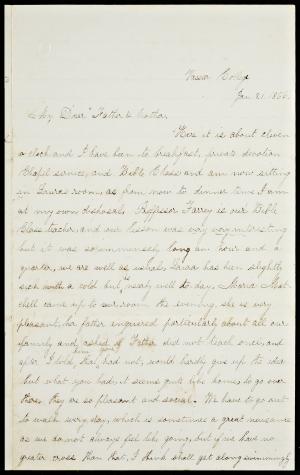 Vassar College
Jan 21, 186
My Dear Father & Mother
Here it is about eleven
o clock and I have been to breakfast, private devotion
Chapel service, and Bible Class and am now sitting
in Laura's room, as from now to dinner time I am
at my own disposal. Professor Farrar is our Bible
Class teacher, and our lesson was very very interesting
but it was so immensely long an hour and a
quarter, we are well as usual, Laura has been slightly
sick with a cold but is nearly well to day, Maria
shall came up to our room this evening, she is very
pleasant, her father enquired particularly about all our
family and asked if Father did not teach once, and
after I told him you had not, would hardly give up the idea
but what you had; it seems quite like home to go over
there they are so pleasant and social. We have to go out
to walk every day, which is sometimes a great nuisance
as we do not always feel like going, but if we have no
greater cross than that, I think I shall get along swimmingly